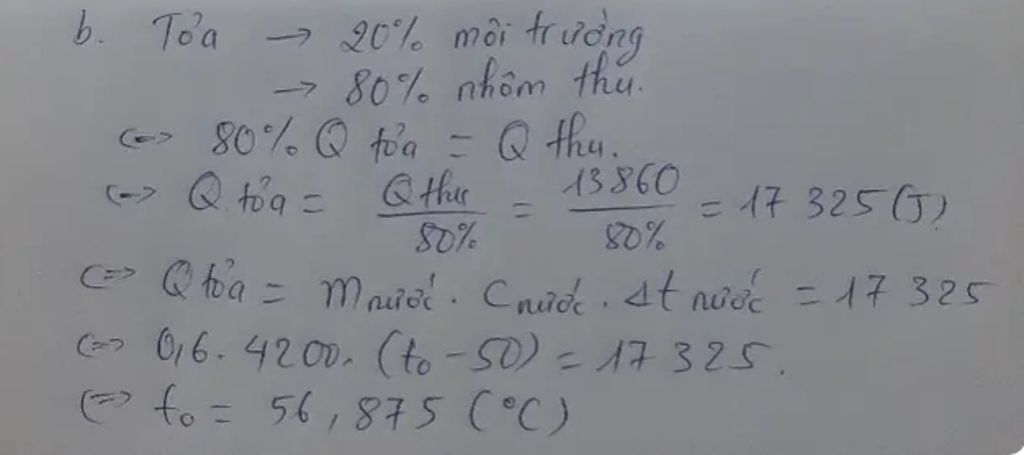 b. Tỏa → 20% môi trường
→ 80% nhôm thu.
<=> 80% Q tỏa = Q thu.
<=> Q tỏa = Q thu / 80% = 13860 / 80% = 17 325 (J)
<=> Q tỏa = m nước . C nước . Δt nước = 17 325
<=> 0,6. 4200. (to - 50) = 17 325.
<=> to = 56,875 (°C)